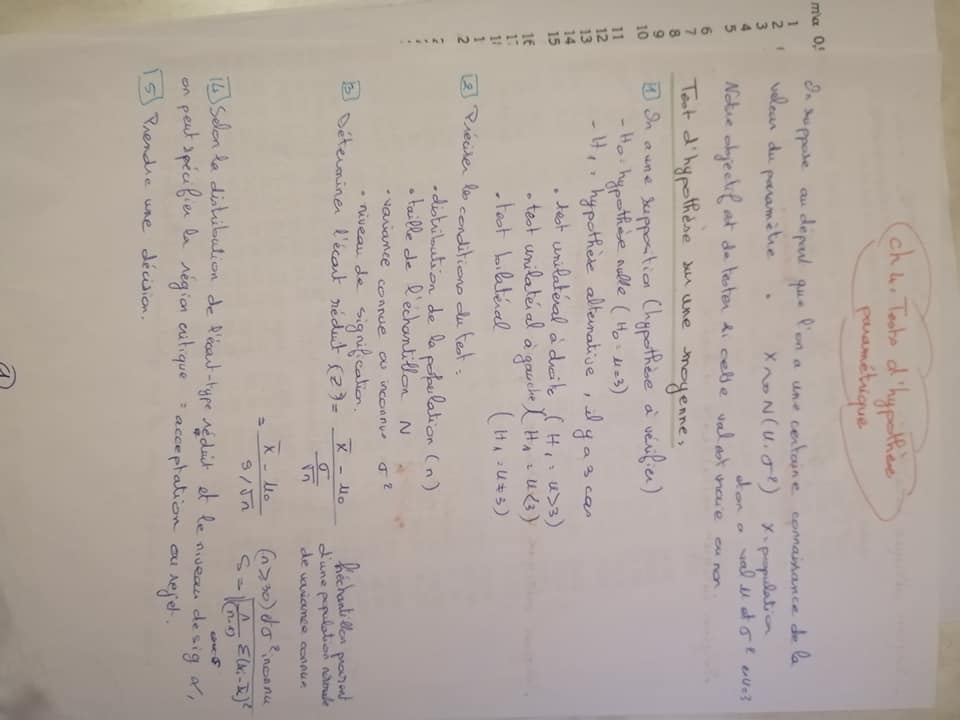 ch 4. Tests d'hypothèse
paramétrique
On suppose au départ que l'on a une certaine connaissance de la
valeur du paramètre . X ~> N(u, σ²) X = population
d'on a val u et σ² u=3
Notre objectif est de tester si cette val est vraie ou non.
Test d'hypothèse sur une moyenne.
1 On a une supposition (hypothèse à vérifier)
- H0 : hypothèse nulle (H0 = u=3)
- H1 : hypothèse alternative, il y a 3 cas
• test unilatéral à droite (H1 = u>3)
• test unilatéral à gauche (H1 = u<3)
• test bilatéral (H1 = u≠3)
2 Préciser les conditions du test :
- distribution de la population (n)
• taille de l'échantillon N
• variance connue ou inconnue σ²
• niveau de signification.
3 Déterminer l'écart réduit (Z) = x̄ - u0 / σ/√n l'échantillon provient
d'une population normale
de variance connue
= x̄ - u0 / S/√n (n ≥ 30) et σ² inconnu
S = √1/(n-1) Σ(xi - x̄)²
4 Selon la distribution de l'écart-type réduit et le niveau de sig α,
on peut spécifier la région critique = acceptation ou rejet.
5 Prendre une décision.
ma 0,
1
2
3
4
5
6
7
8
9
10
11
12
13
14
15
16
1
2